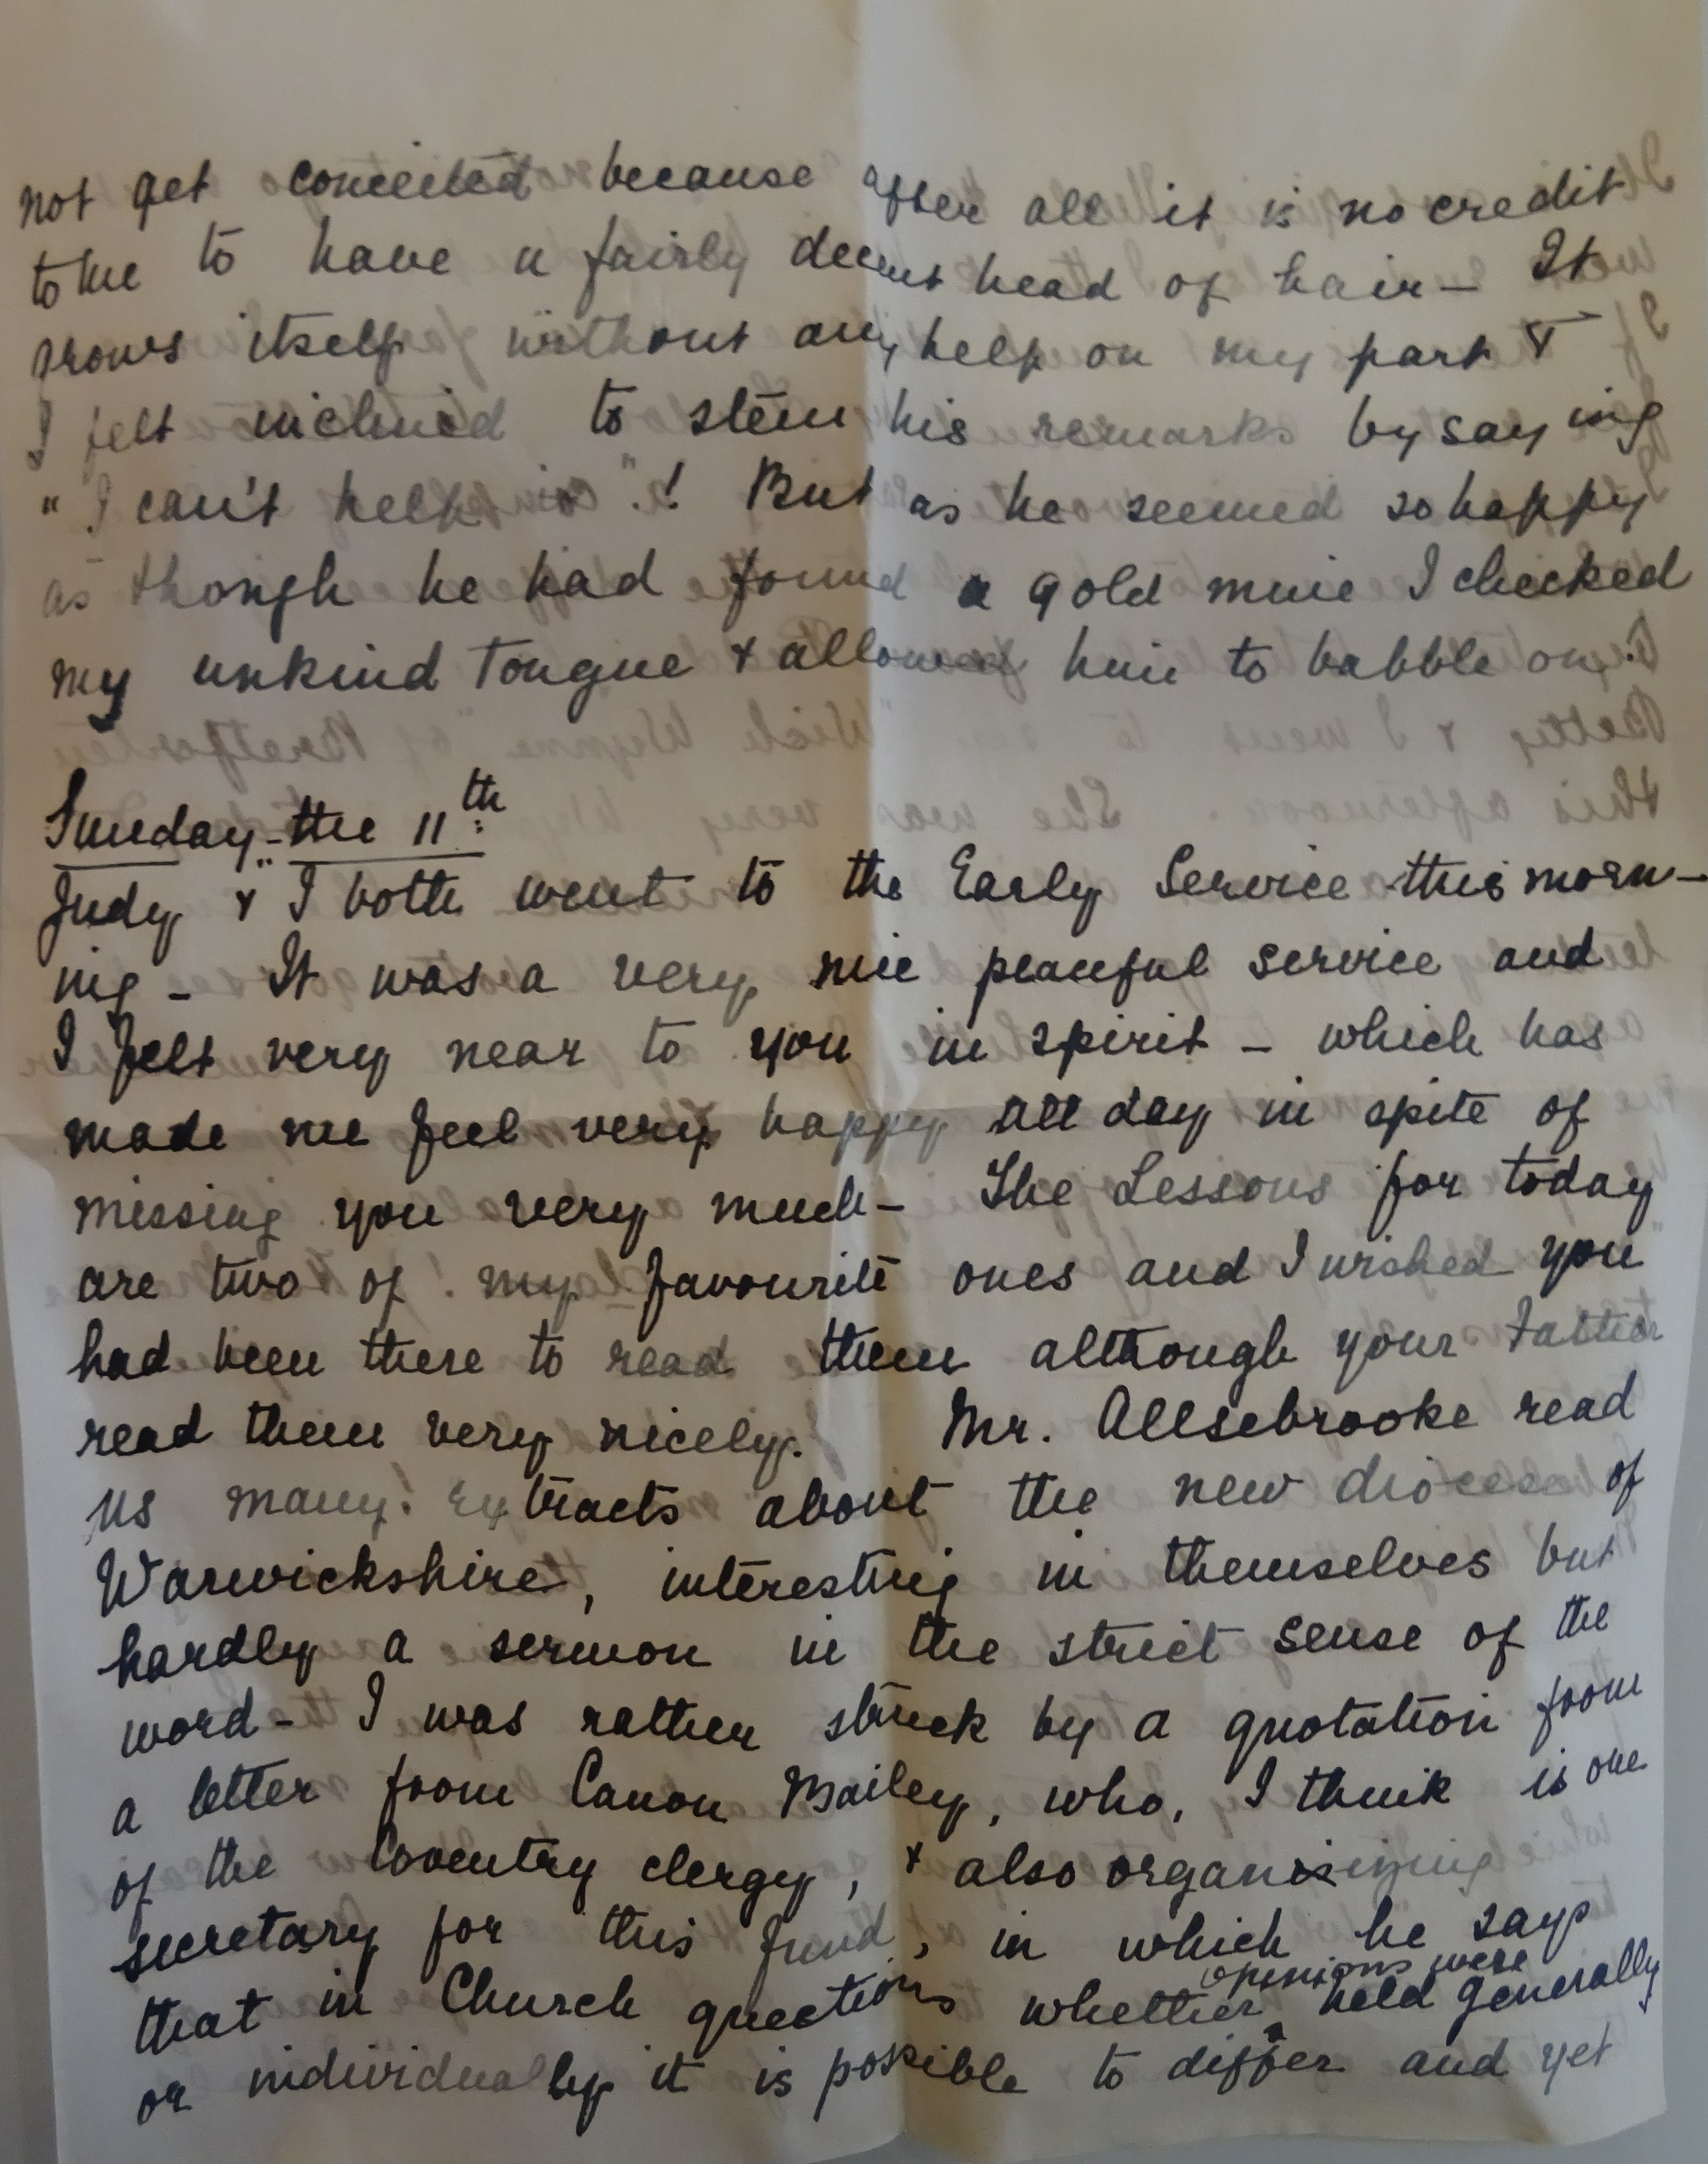 not get conceited because after all it is no credit
to me to have a fairly decent head of hair – It
grows itself without any help on my part &
I felt inclined to stem his remarks by saying
"I can't help it"! But as he seemed so happy
as though he had found a gold mine I checked
my unkind tongue & allowed him to babble on!
Sunday the 11th
Judy & I both went to the Early Service this morn-
ing – It was a very nice peaceful service and
I felt very near to you in spirit – which has
made me feel very happy all day in spite of
missing you very much – The Lessons for today
are two of my favourite ones and I wished you
had been there to read them although your Father
read them very nicely. Mr. Allsebrooke read
us many extracts about the new diocese of
Warwickshire, interesting in themselves but
hardly a sermon in the strict sense of the
word – I was rather struck by a quotation from
a letter from Canon Bailey, who, I think is one
of the Coventry clergy, & also organising
secretary for this fund, in which he says
that in Church questions whether opinions were held generally
or individually it is possible to differ and yet